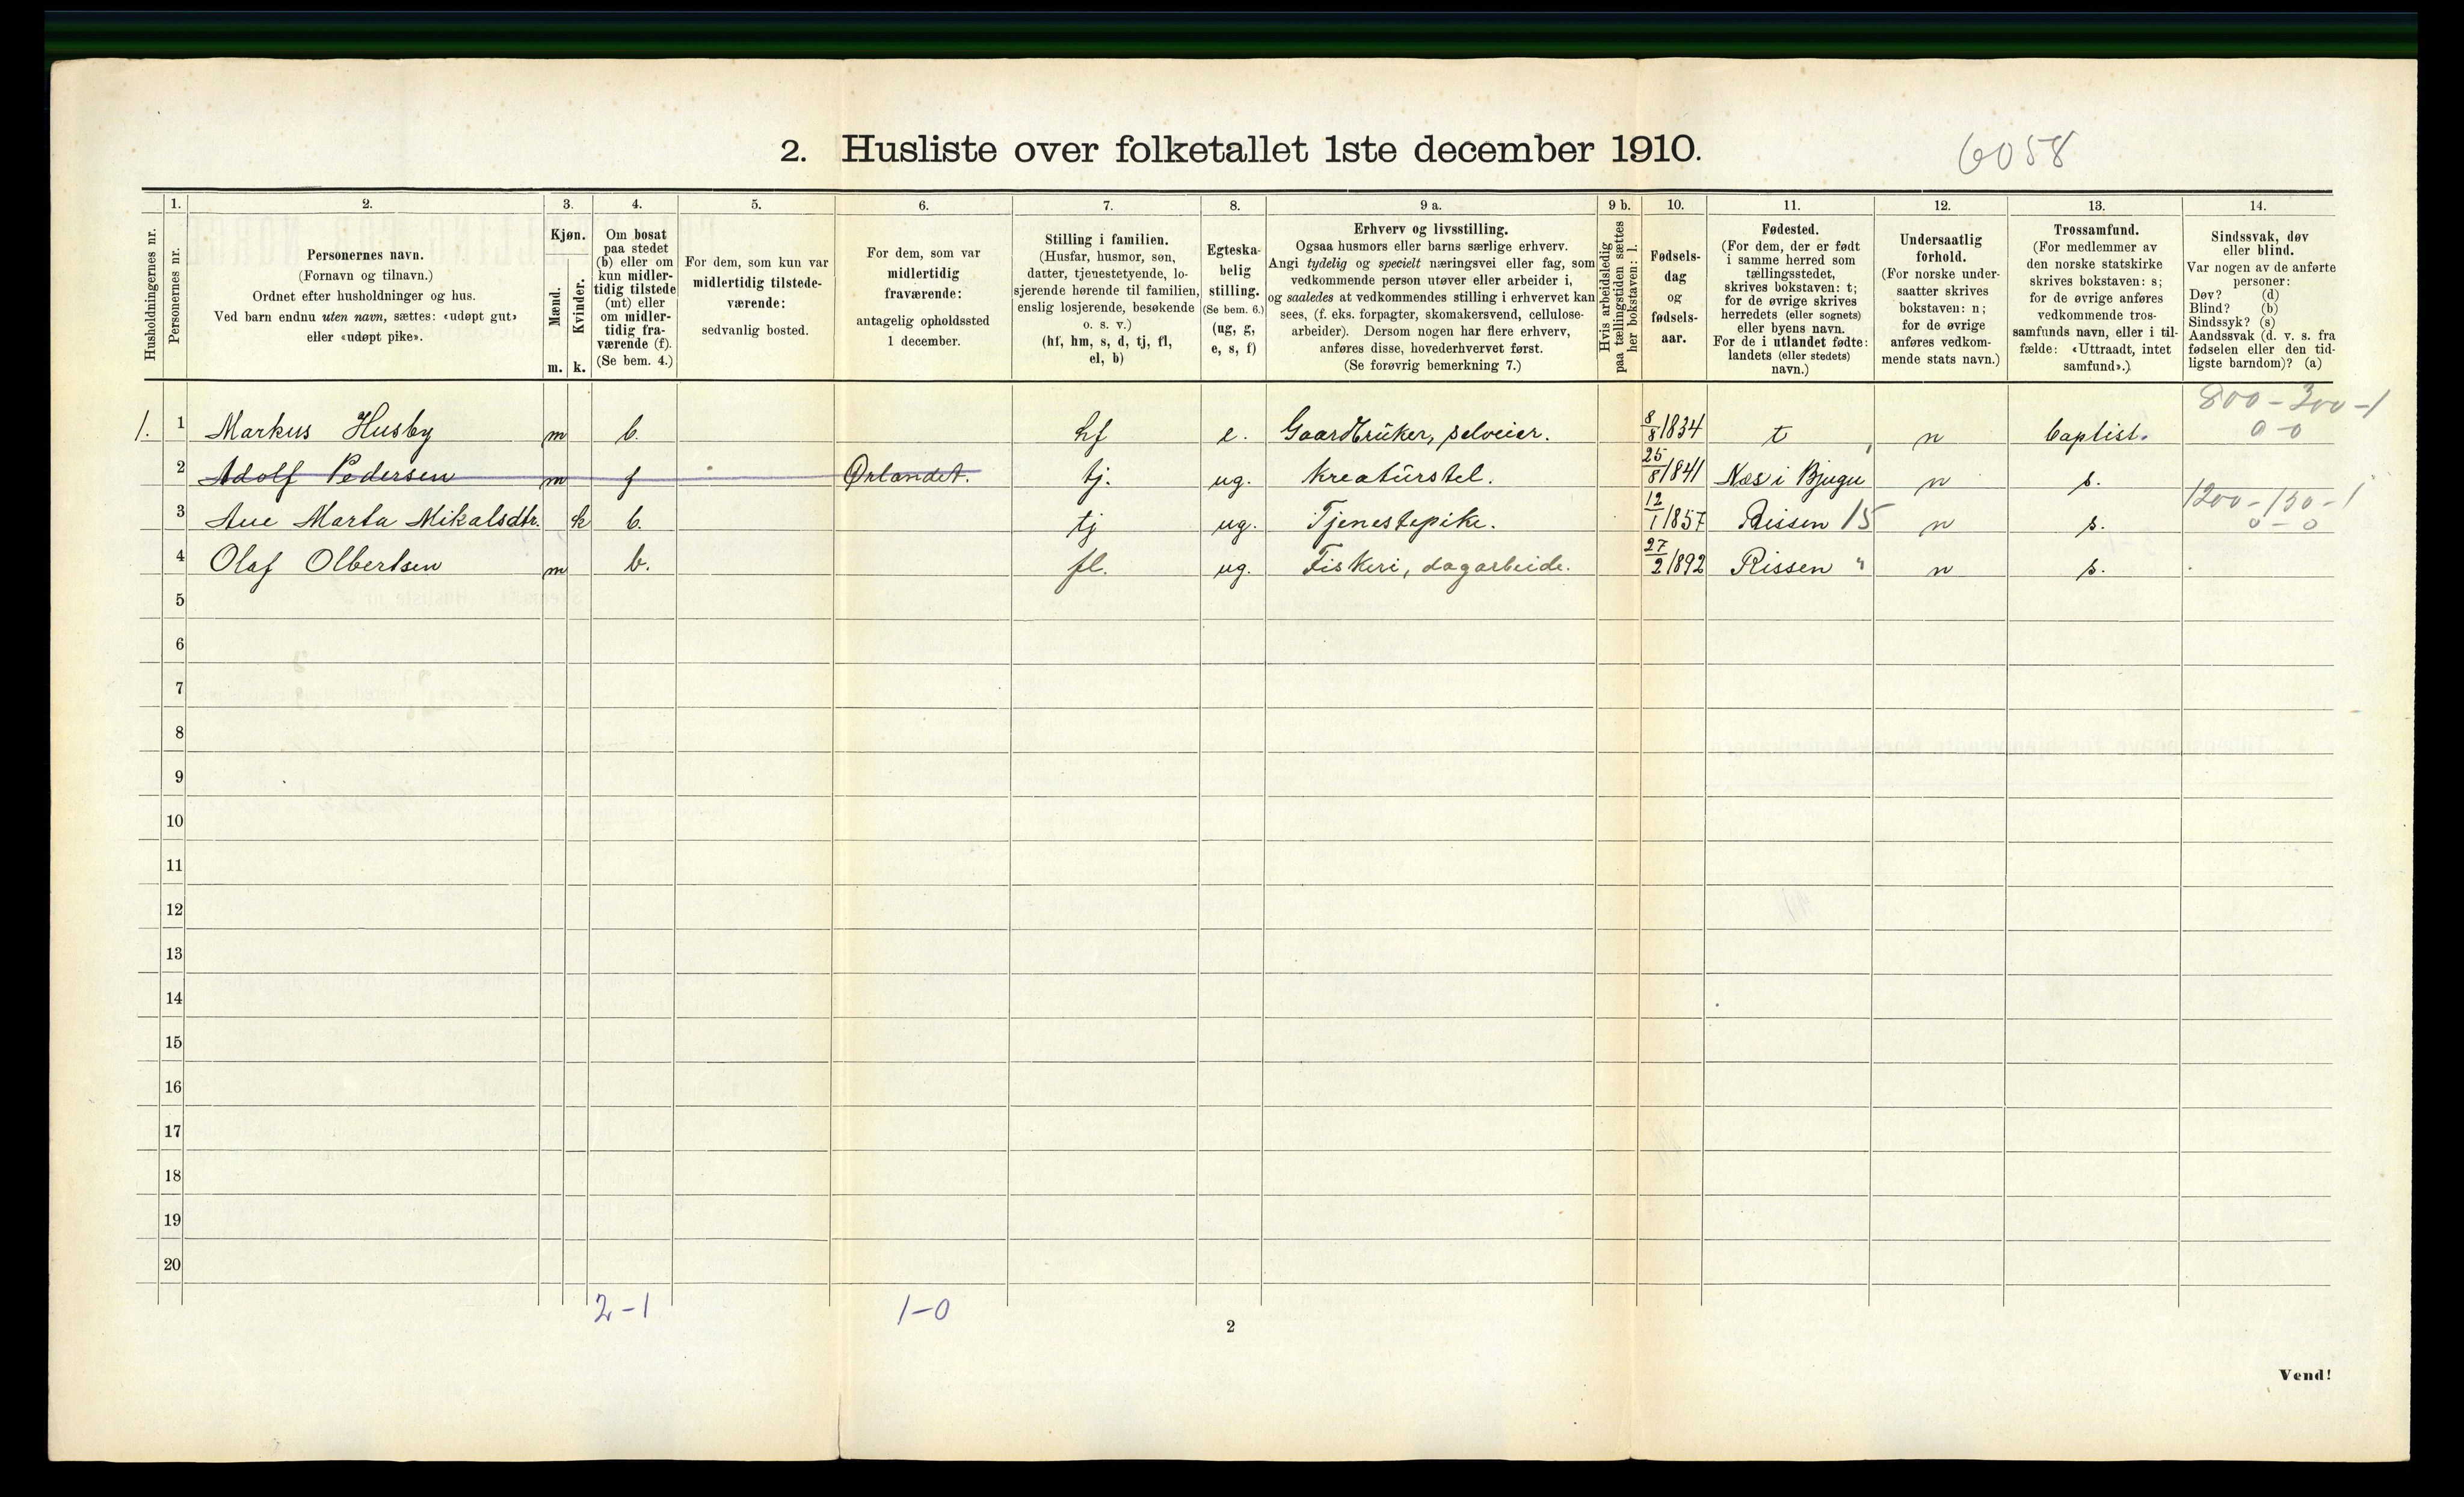 2. Husliste over folketallet 1ste december 1910.
6058
Husholdningernes nr.
1.
Personernes nr.
2.
Personernes navn.
(Fornavn og tilnavn.)
Ordnet efter husholdninger og hus.
Ved barn endnu uten navn, sættes: «udøpt gut»
eller «udøpt pike».
3.
Kjøn.
Mænd.
Kvinder.
m. k.
4.
Om bosat
paa stedet
(b) eller om
kun midler-
tidig tilstede
(mt) eller
om midler-
tidig fra-
værende (f).
(Se bem. 4.)
5.
For dem, som kun var
midlertidig tilstede-
værende:
sedvanlig bosted.
6.
For dem, som var
midlertidig
fraværende:
antagelig opholdssted
1 december.
7.
Stilling i familien.
(Husfar, husmor, søn,
datter, tjenestetyende, lo-
sjerende hørende til familien,
enslig losjerende, besøkende
o. s. v.)
(hf, hm, s, d, tj, fl,
el, b)
8.
Egteska-
belig
stilling.
(Se bem. 6.)
(ug, g,
e, s, f)
9 a.
Erhverv og livsstilling.
Ogsaa husmors eller barns særlige erhverv.
Angi tydelig og specielt næringsvei eller fag, som
vedkommende person utøver eller arbeider i,
og saaledes at vedkommendes stilling i erhvervet kan
sees, (f. eks. forpagter, skomakersvend, cellulose-
arbeider). Dersom nogen har flere erhverv,
anføres disse, hovederhvervet først.
(Se forøvrig bemerkning 7.)
9 b.
Hvis arbeidsledig
paa tællingstiden sættes
her bokstaven: l.
10.
Fødsels-
dag
og
fødsels-
aar.
11.
Fødested.
(For dem, der er født
i samme herred som
tællingsstedet,
skrives bokstaven: t;
for de øvrige skrives
herredets (eller sognets)
eller byens navn.
For de i utlandet fødte:
landets (eller stedets)
navn.)
12.
Undersaatlig
forhold.
(For norske under-
saatter skrives
bokstaven: n;
for de øvrige
anføres vedkom-
mende stats navn.)
13.
Trossamfund.
(For medlemmer av
den norske statskirke
skrives bokstaven: s;
for de øvrige anføres
vedkommende tros-
samfunds navn, eller i til-
fælde: «Uttraadt, intet
samfund».)
14.
Sindssvak, døv
eller blind.
Var nogen av de anførte
personer:
Døv? (d)
Blind? (b)
Sindssyk? (s)
Aandssvak (d. v. s. fra
fødselen eller den tid-
ligste barndom)? (a)
800-300-1
1. 1 Markus Husby m b. hf e. Gaardbruker, selveier. 8/8 1834 t n baptist. 0-0
2 Adolf Pedersen m f Ørlandet. tj. ug. Kreaturstel. 25/8 1841 Næs i Bjugn n s.
1200-150-1
3 Ane Marta Mikalsdtr. k b. tj ug. Tjenestepike. 12/1 1857 Rissen 15 n s. 0-0
4 Olaf Olbertsen m b. fl. ug. Fiskeri, dagarbeide. 27/2 1892 Rissen " n s.
5
6
7
8
9
10
11
12
13
14
15
16
17
18
19
20
2-1 1-0
2
Vend!